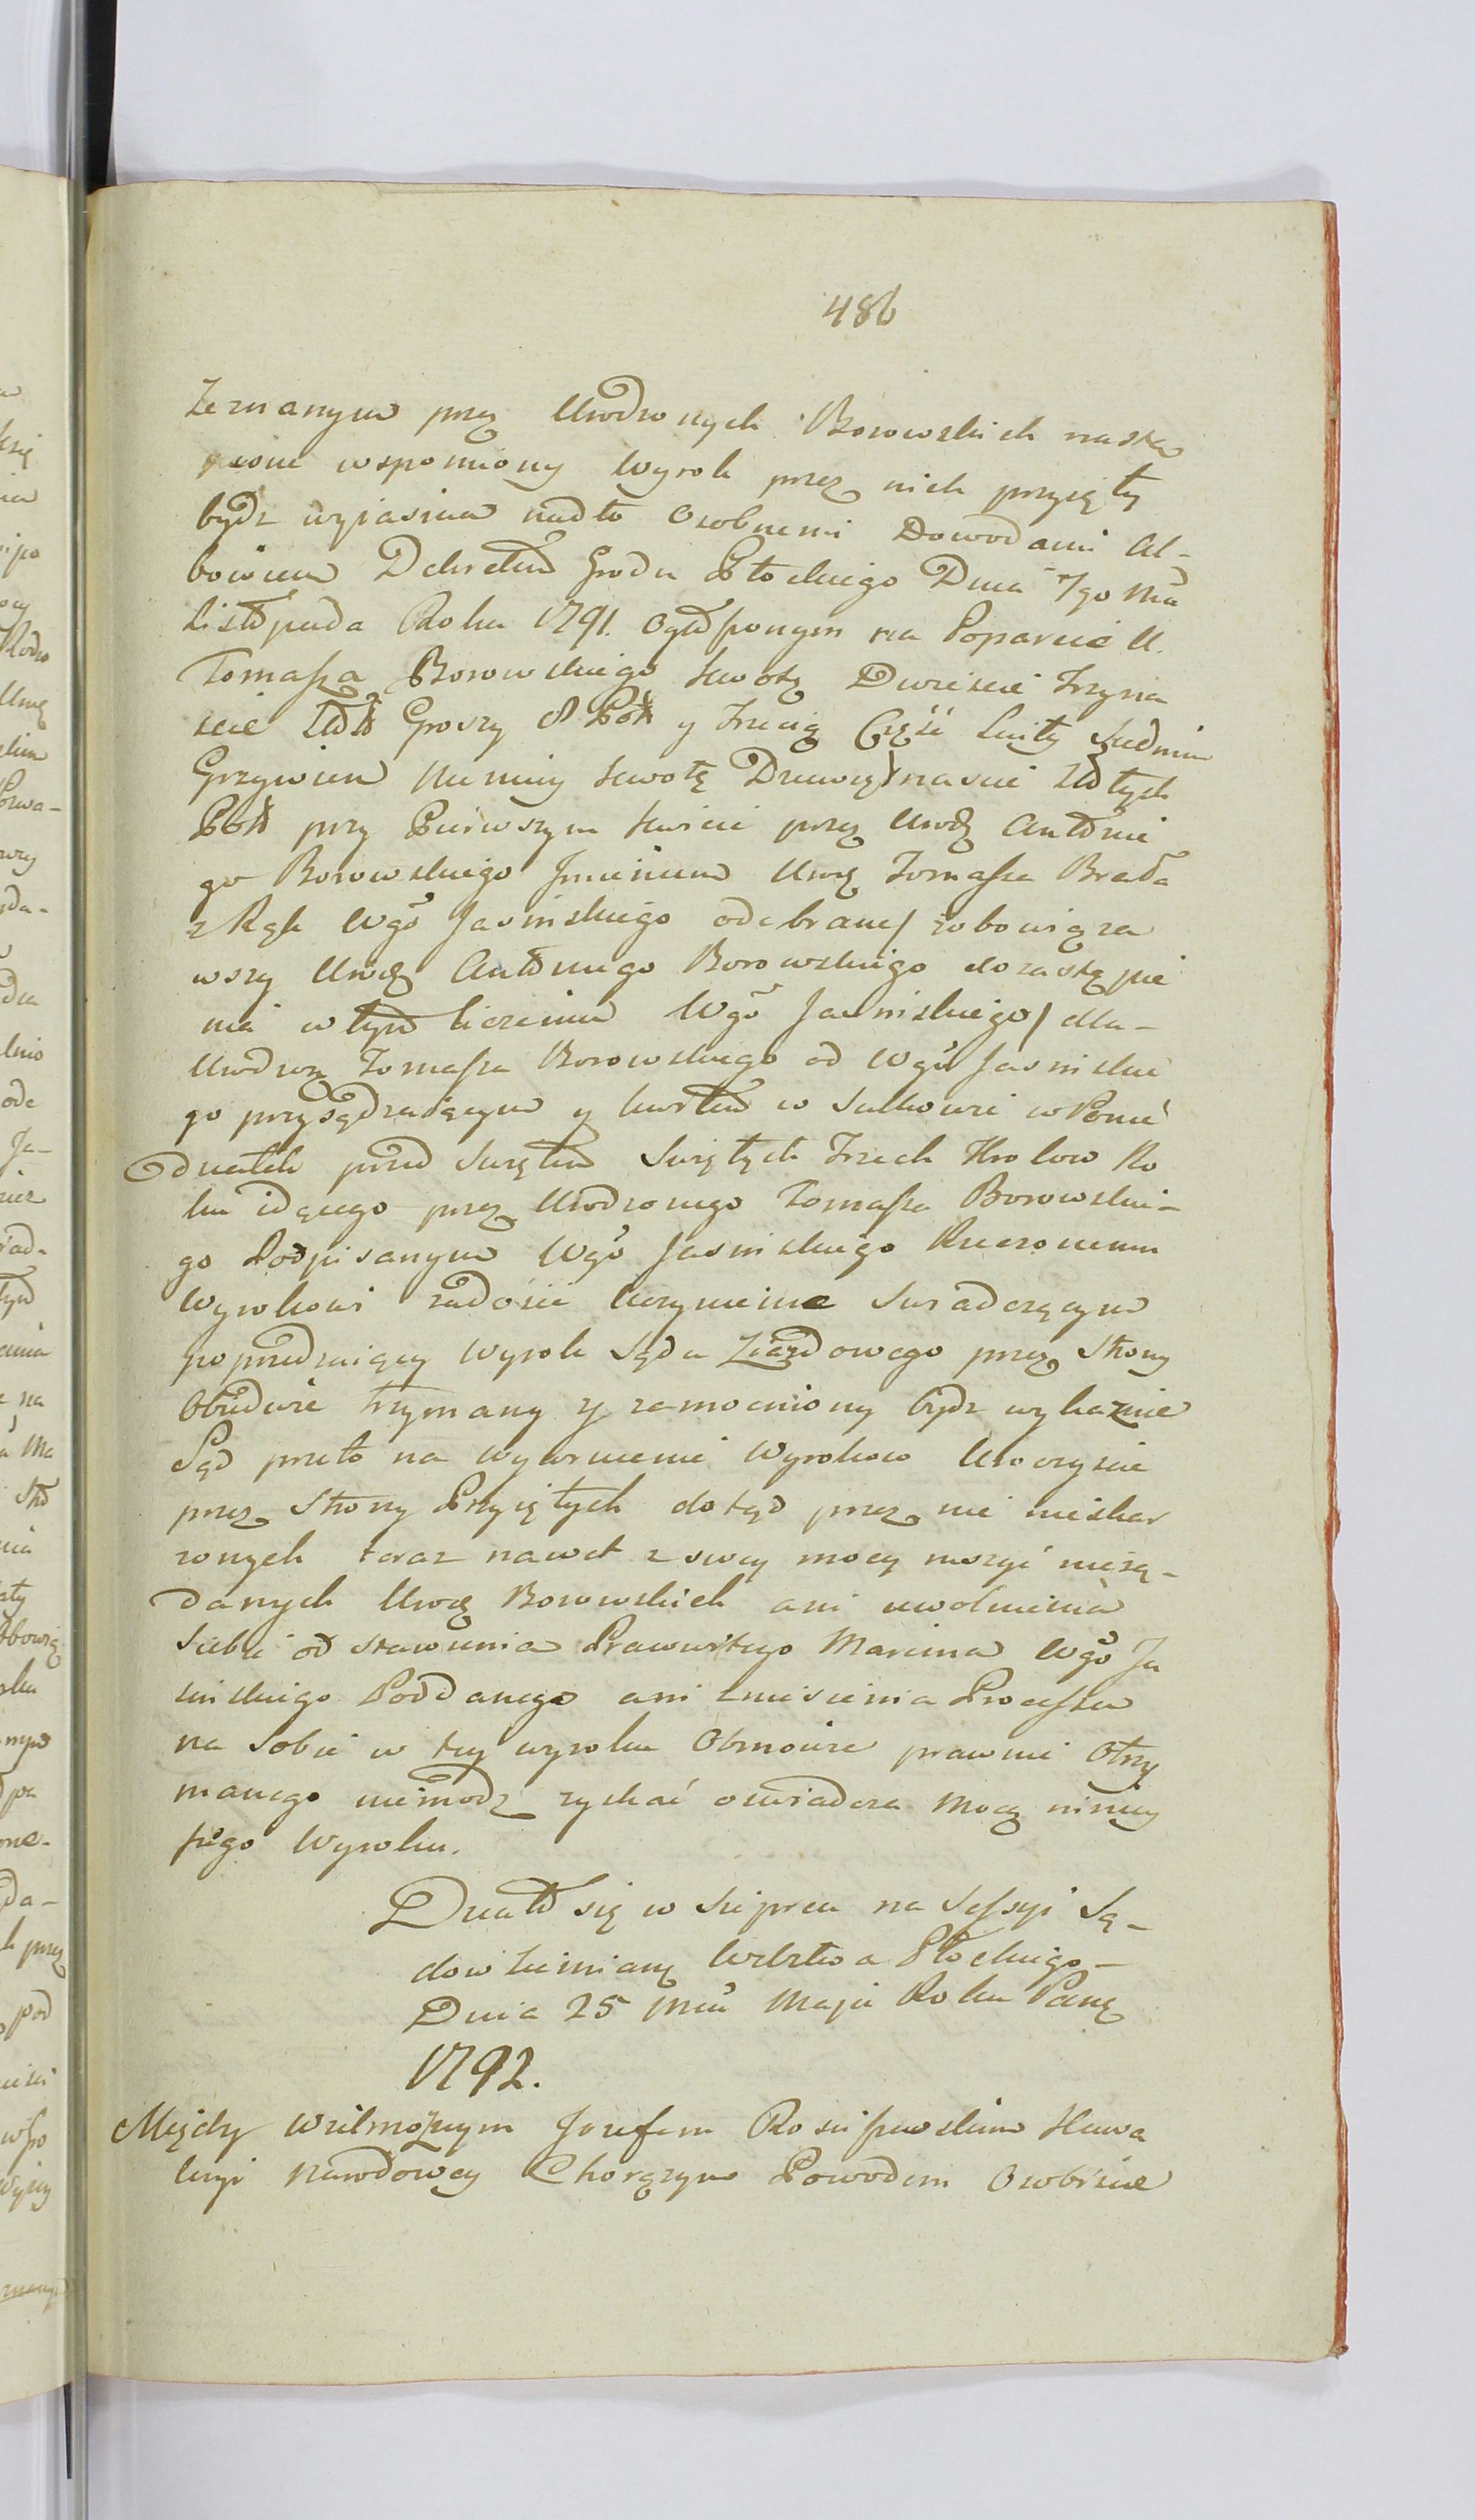 486
Zeznanym przez Urodzonych Borowskich nastą
pione wspomiony Wyrok przez nich przyięty
bydz wyiasnia nadto Osobnemi Dowodami Al-
bowiem Dekretem Grodu Płockiego Dnia 7go Mca
Listopada Roku 1791. ogłoszonym na Poparcie U.
Tomasza Borowskiego kwotę Dwieście Trzyna
scie Złotch Groszy 8 Pol. y Trzecią Część Siedmiu
Grzywien Mniey kwotę Dziewiętnascie Złotych
Pol. przy Pierwszym kursie przez Urodz Antonie
go Borowskiego Jmieniem Urodz Tomasza Brata
z Rąk Wgo Jasinskiego odebraney zobowiąza
wszy Urodz Antoniego Borowskiego do zastąpie
nia w tym liczeniu Wgo Jasinskiego / dla-
Urodzon Tomasza Borowskiego od Wgo Jasinskie
go przysądzaiącym y kwitem w Sulkowie w Ponie
działek przed Swiętem Swiętych Trzech Krolow Ro
ku idącego przez Urodzonego Tomasza Borowskie-
go Podpisanym Wgo Jasinskiego Rzeczonemu
Wyrokowi zadosić Uczynienie Swiadczącym
poprzedzaiący Wyrok Sądu Ziazdowego przez Strony
Obiedwie trzymany y zamocniony bydz wykaznie
Sąd przeto na wywrucenie Wyrokow Uroczyscie
przez Strony Przyiętych dotąd przez nie nieskar
zonych teraz nawet z swey mocy mszyć nieżą-
danych Urodz Borowskich ani uwolnienia
Siebie od stawienia Prawnitego Marcina Wgo Ja
sinskiego Poddanego ani zniesienia Processu
na Sobie w tey wyroku Obmowie prawnie Otrzy
manego niemodz zyskać oswiadcza Mocą niniey
szego Wyroku.
Działo się w Sierpcu na Sessyi Są-
dow Ziemiany Wdztwa Płockiego-
Dnia 25 Mca Maja Roku Pang
1792.
Między Wielmożnym Jozefem Rosciszewskim Kawa
leryi Narodowey Chorązym Powodem Osobiscie